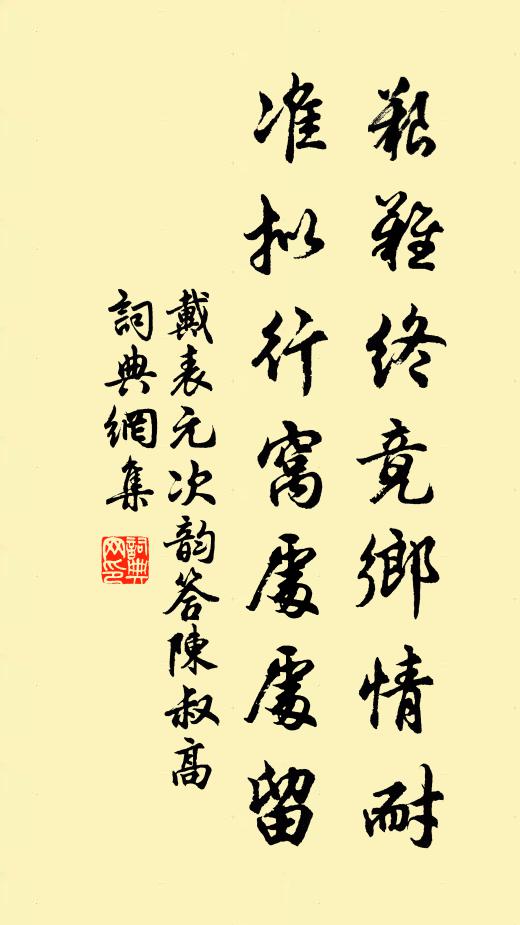 艱難終竟鄉情耐
准拟行窩處處留
戴表元次韵答陳叔高
詞典網集
詞典網印